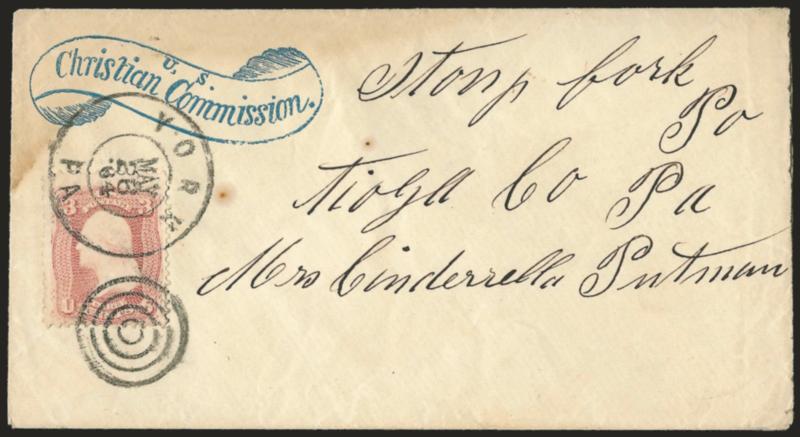 U. S.
Christian Commission.
YORK PA
MAY
'64
3 3
U
Stony fork
Po
Tioga Co Pa
Mrs Cinderrella Putman